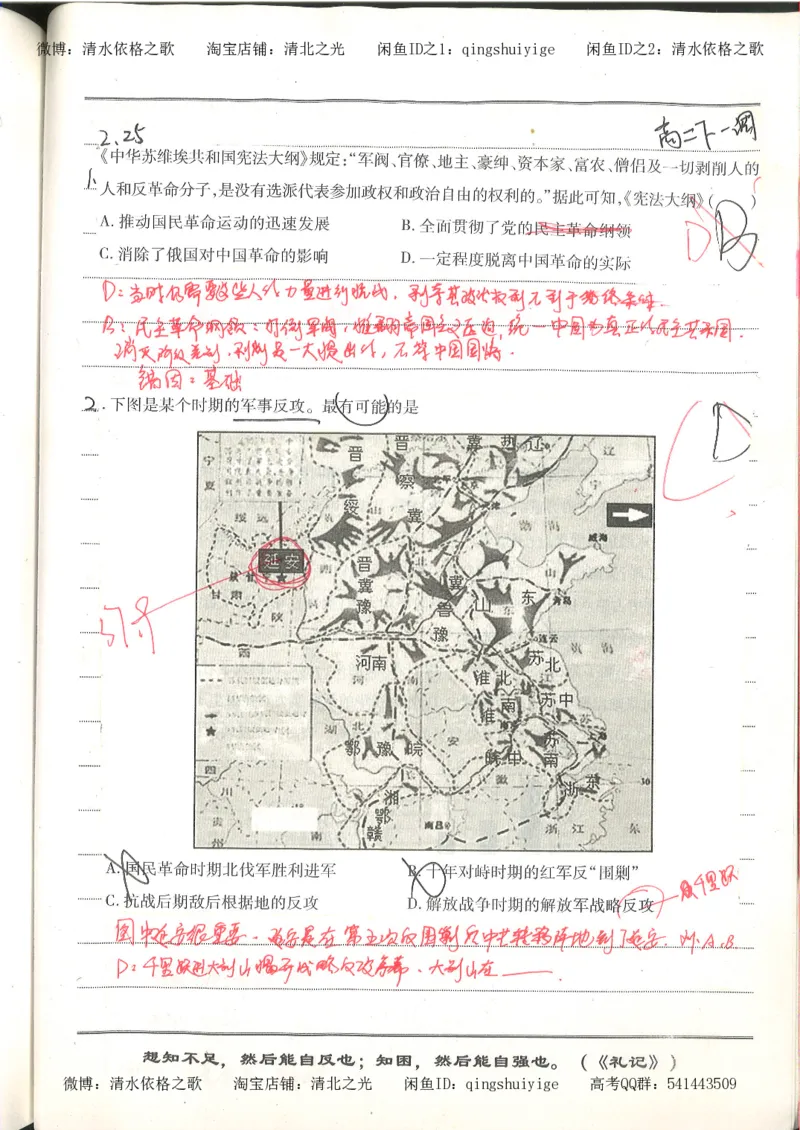 微博：清水依格之歌 淘宝店铺：清北之光 闲鱼ID之1：qingshuiyige 闲鱼ID之2：清水依格之歌
2.25
高二下一调
《中华苏维埃共和国宪法大纲》规定：“军阀、官僚、地主、豪绅、资本家、富农、僧侣及一切剥削人的
1.
人和反革命分子，是没有选派代表参加政权和政治自由的权利的。”据此可知，《宪法大纲》( )
D B
A. 推动国民革命运动的迅速发展 B. 全面贯彻了党的民主革命纲领
C. 消除了俄国对中国革命的影响 D. 一定程度脱离中国革命的实际
D：当时仍需要这些人的力量进行抗战，剥夺其政治权利不利于
B：民主革命纲领：打倒军阀，推翻帝国主义压迫，统一中国为真正的民主共和国．
消灭阶级差别，是一大提出的，不符中国国情．
错因：基础
2. 下图是某个时期的军事反攻。最有可能的是
C D
晋 晋 冀 热 辽
察
绥 冀
宁 夏
绥 远
辽 宁
天津
渤 海
威海
延安
陕 甘
甘 肃
晋 冀 豫
冀 鲁 豫
山 东
山 东
青岛
陕
西
连云
河南
河 南
苏 北
淮 北
淮 南
苏 中
苏 南
上海
鄂 豫 皖
湖 北
安
徽
皖 中
浙 东
湘 鄂 赣
四 川
贵 州
南
南昌
浙 江
东
30
A. 国民革命时期北伐军胜利进军 B. 十年对峙时期的红军反“围剿”
C. 抗战后期敌后根据地的反攻 D. 解放战争时期的解放军战略反攻
千里跃
图中延安很重要．延安是在第五次反围剿后中共转移阵地到了延安．对：A、B
D：千里跃进大别山揭开战略反攻序幕．大别山在
想知不足，然后能自反也；知困，然后能自强也。（《礼记》）
微博：清水依格之歌 淘宝店铺：清北之光 闲鱼ID：qingshuiyige 高考QQ群：541443509